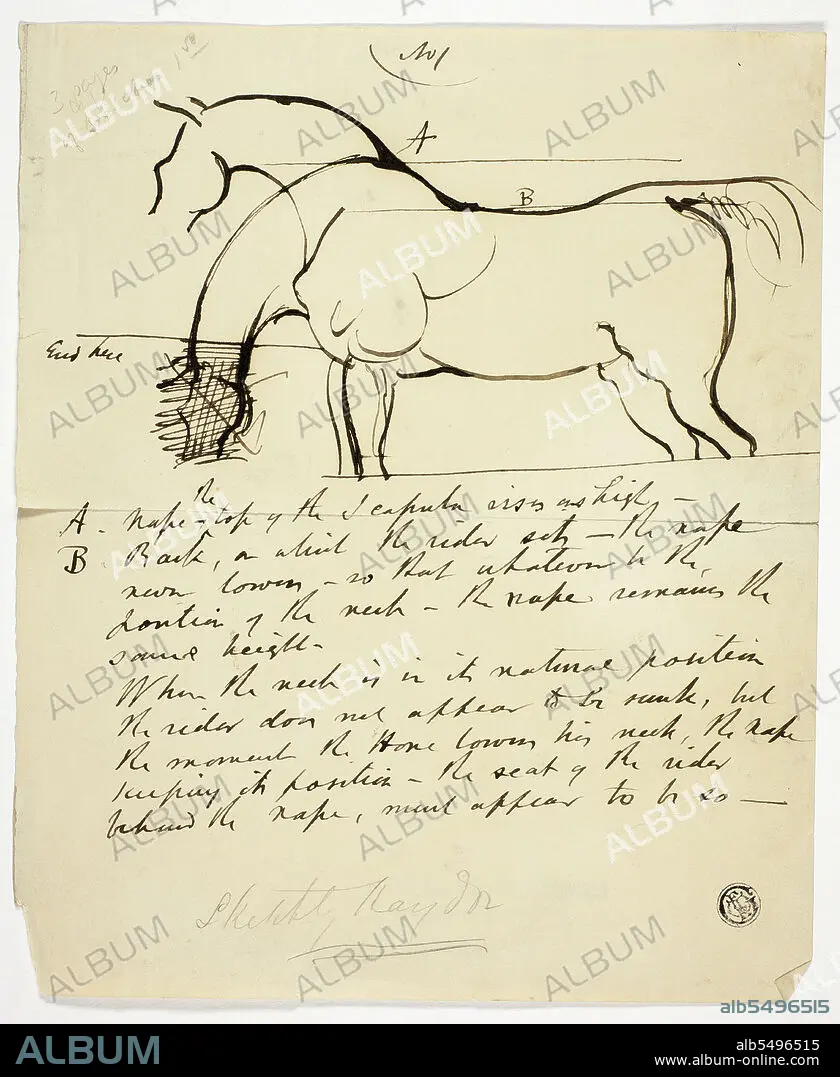 No 1
3 pages
A
B
End here
the
A - Nape - top of the Scapula rises as high -
B Back, on which the rider sits - the nape
never lowers - so that whatever be the
position of the neck - the nape remains the
same height -
When the neck is in its natural position
the rider does not appear to be sunk, but
the moment the Horse lowers his neck, the nape
keeping its position - the seat of the rider
behind the nape, must appear to be so -
Sketch by Haydon
ALBUM
alb5496515
ALBUM
alb5496515
www.album-online.com